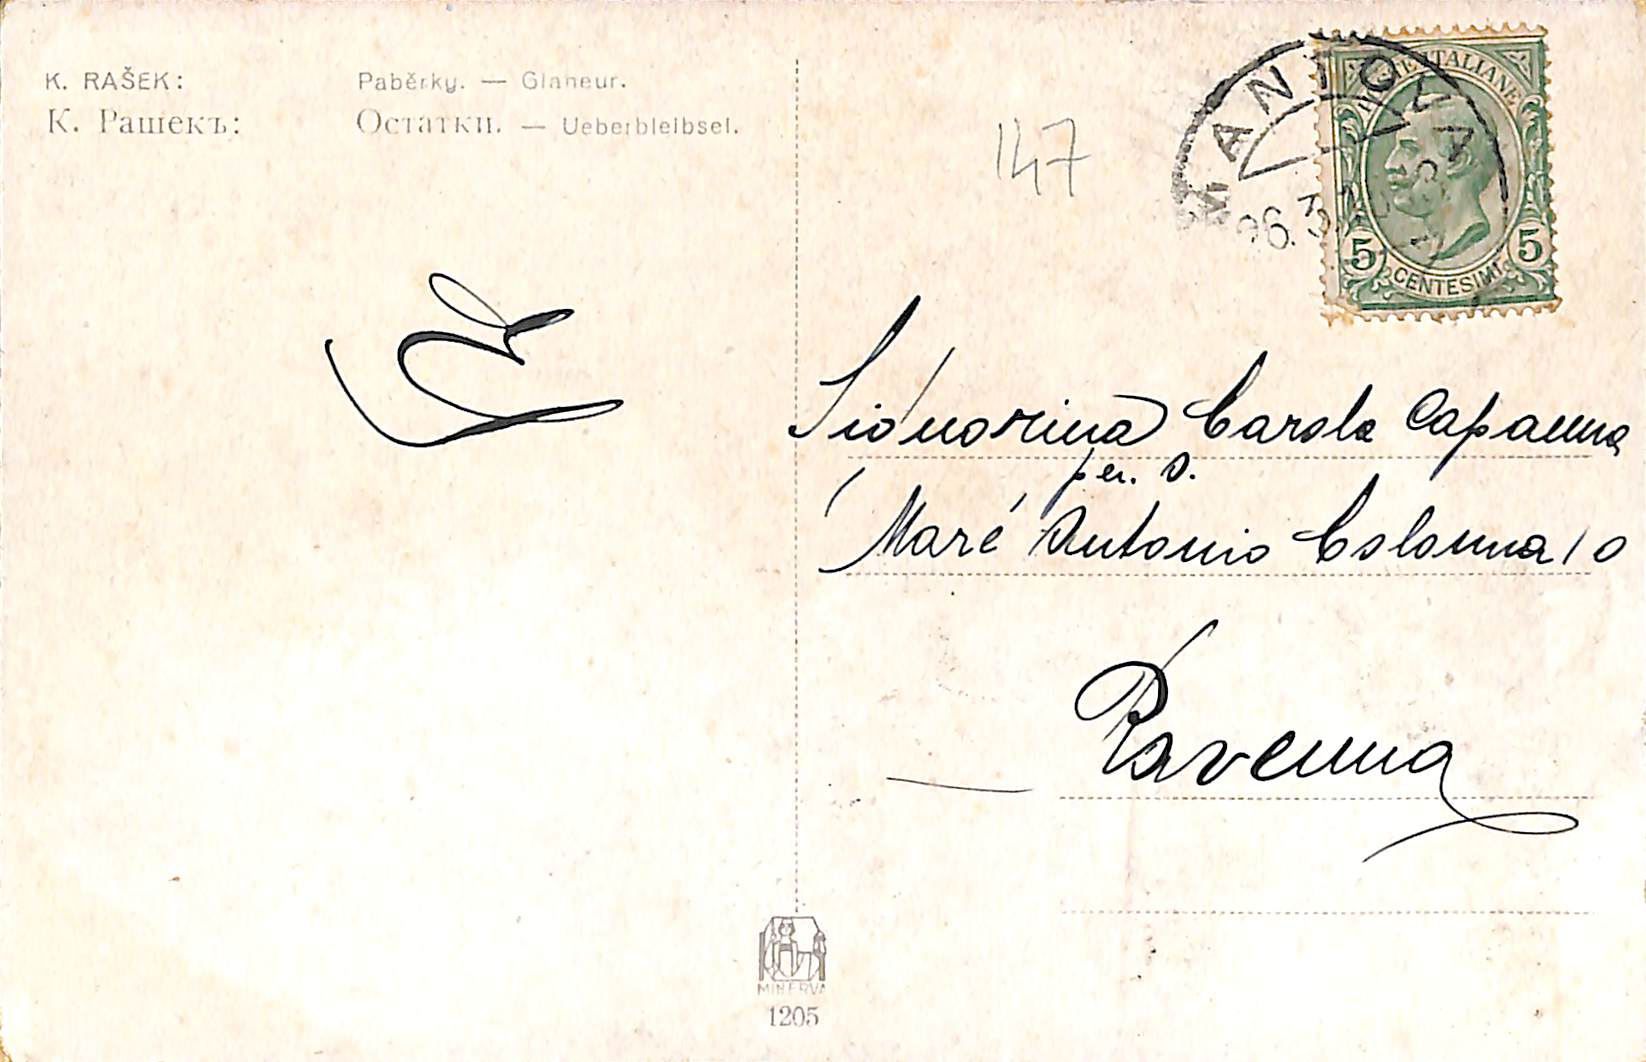 K. RAŠEK: Paběrky. — Glaneur.
К. Рашекъ: Остатки. — Ueberbleibsel.
147
MANTOVA
POSTE ITALIANE
5 5
CENTESIMI
Signorina Carola Capanna
per. S.
Maré Antonio Colonna 10
Ravenna
MINERVA
1205